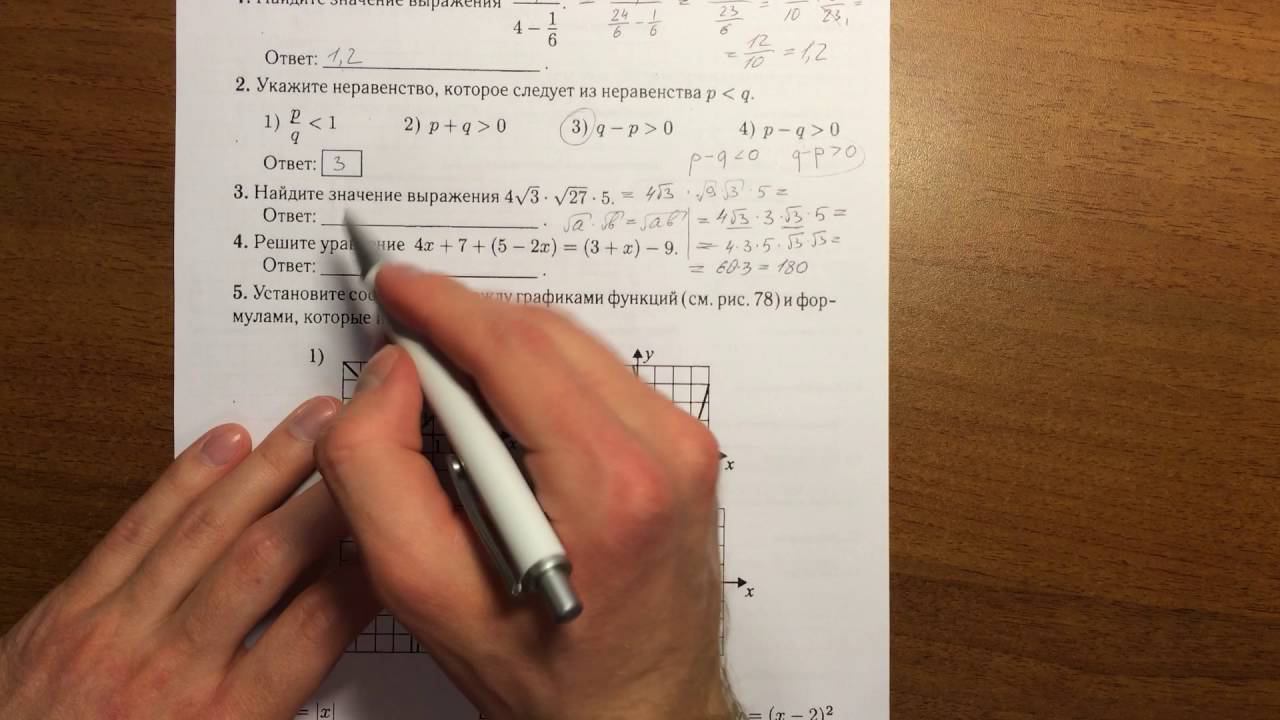 Найдите значение выражения
4 − 1/6 . = 24/6 − 1/6 = 23/6 = 10 23 =
= 12/10 = 1,2
Ответ: 1,2 .
2. Укажите неравенство, которое следует из неравенства p < q.
1) p/q < 1 2) p + q > 0 3) q − p > 0 4) p − q > 0
Ответ: 3 p−q<0 q−p>0
3. Найдите значение выражения 4√3 · √27 · 5. = 4√3 · √9 √3 · 5 =
Ответ: . √a · √b = √ab = 4√3 · 3 · √3 · 5 =
4. Решите уравнение 4x + 7 + (5 − 2x) = (3 + x) − 9. = 4·3·5·√3·√3 =
Ответ: . = 60·3 = 180
5. Установите графиками функций (см. рис. 78) и фор-
мулами, которые
1) y
x
x
= |x| = (x − 2)²